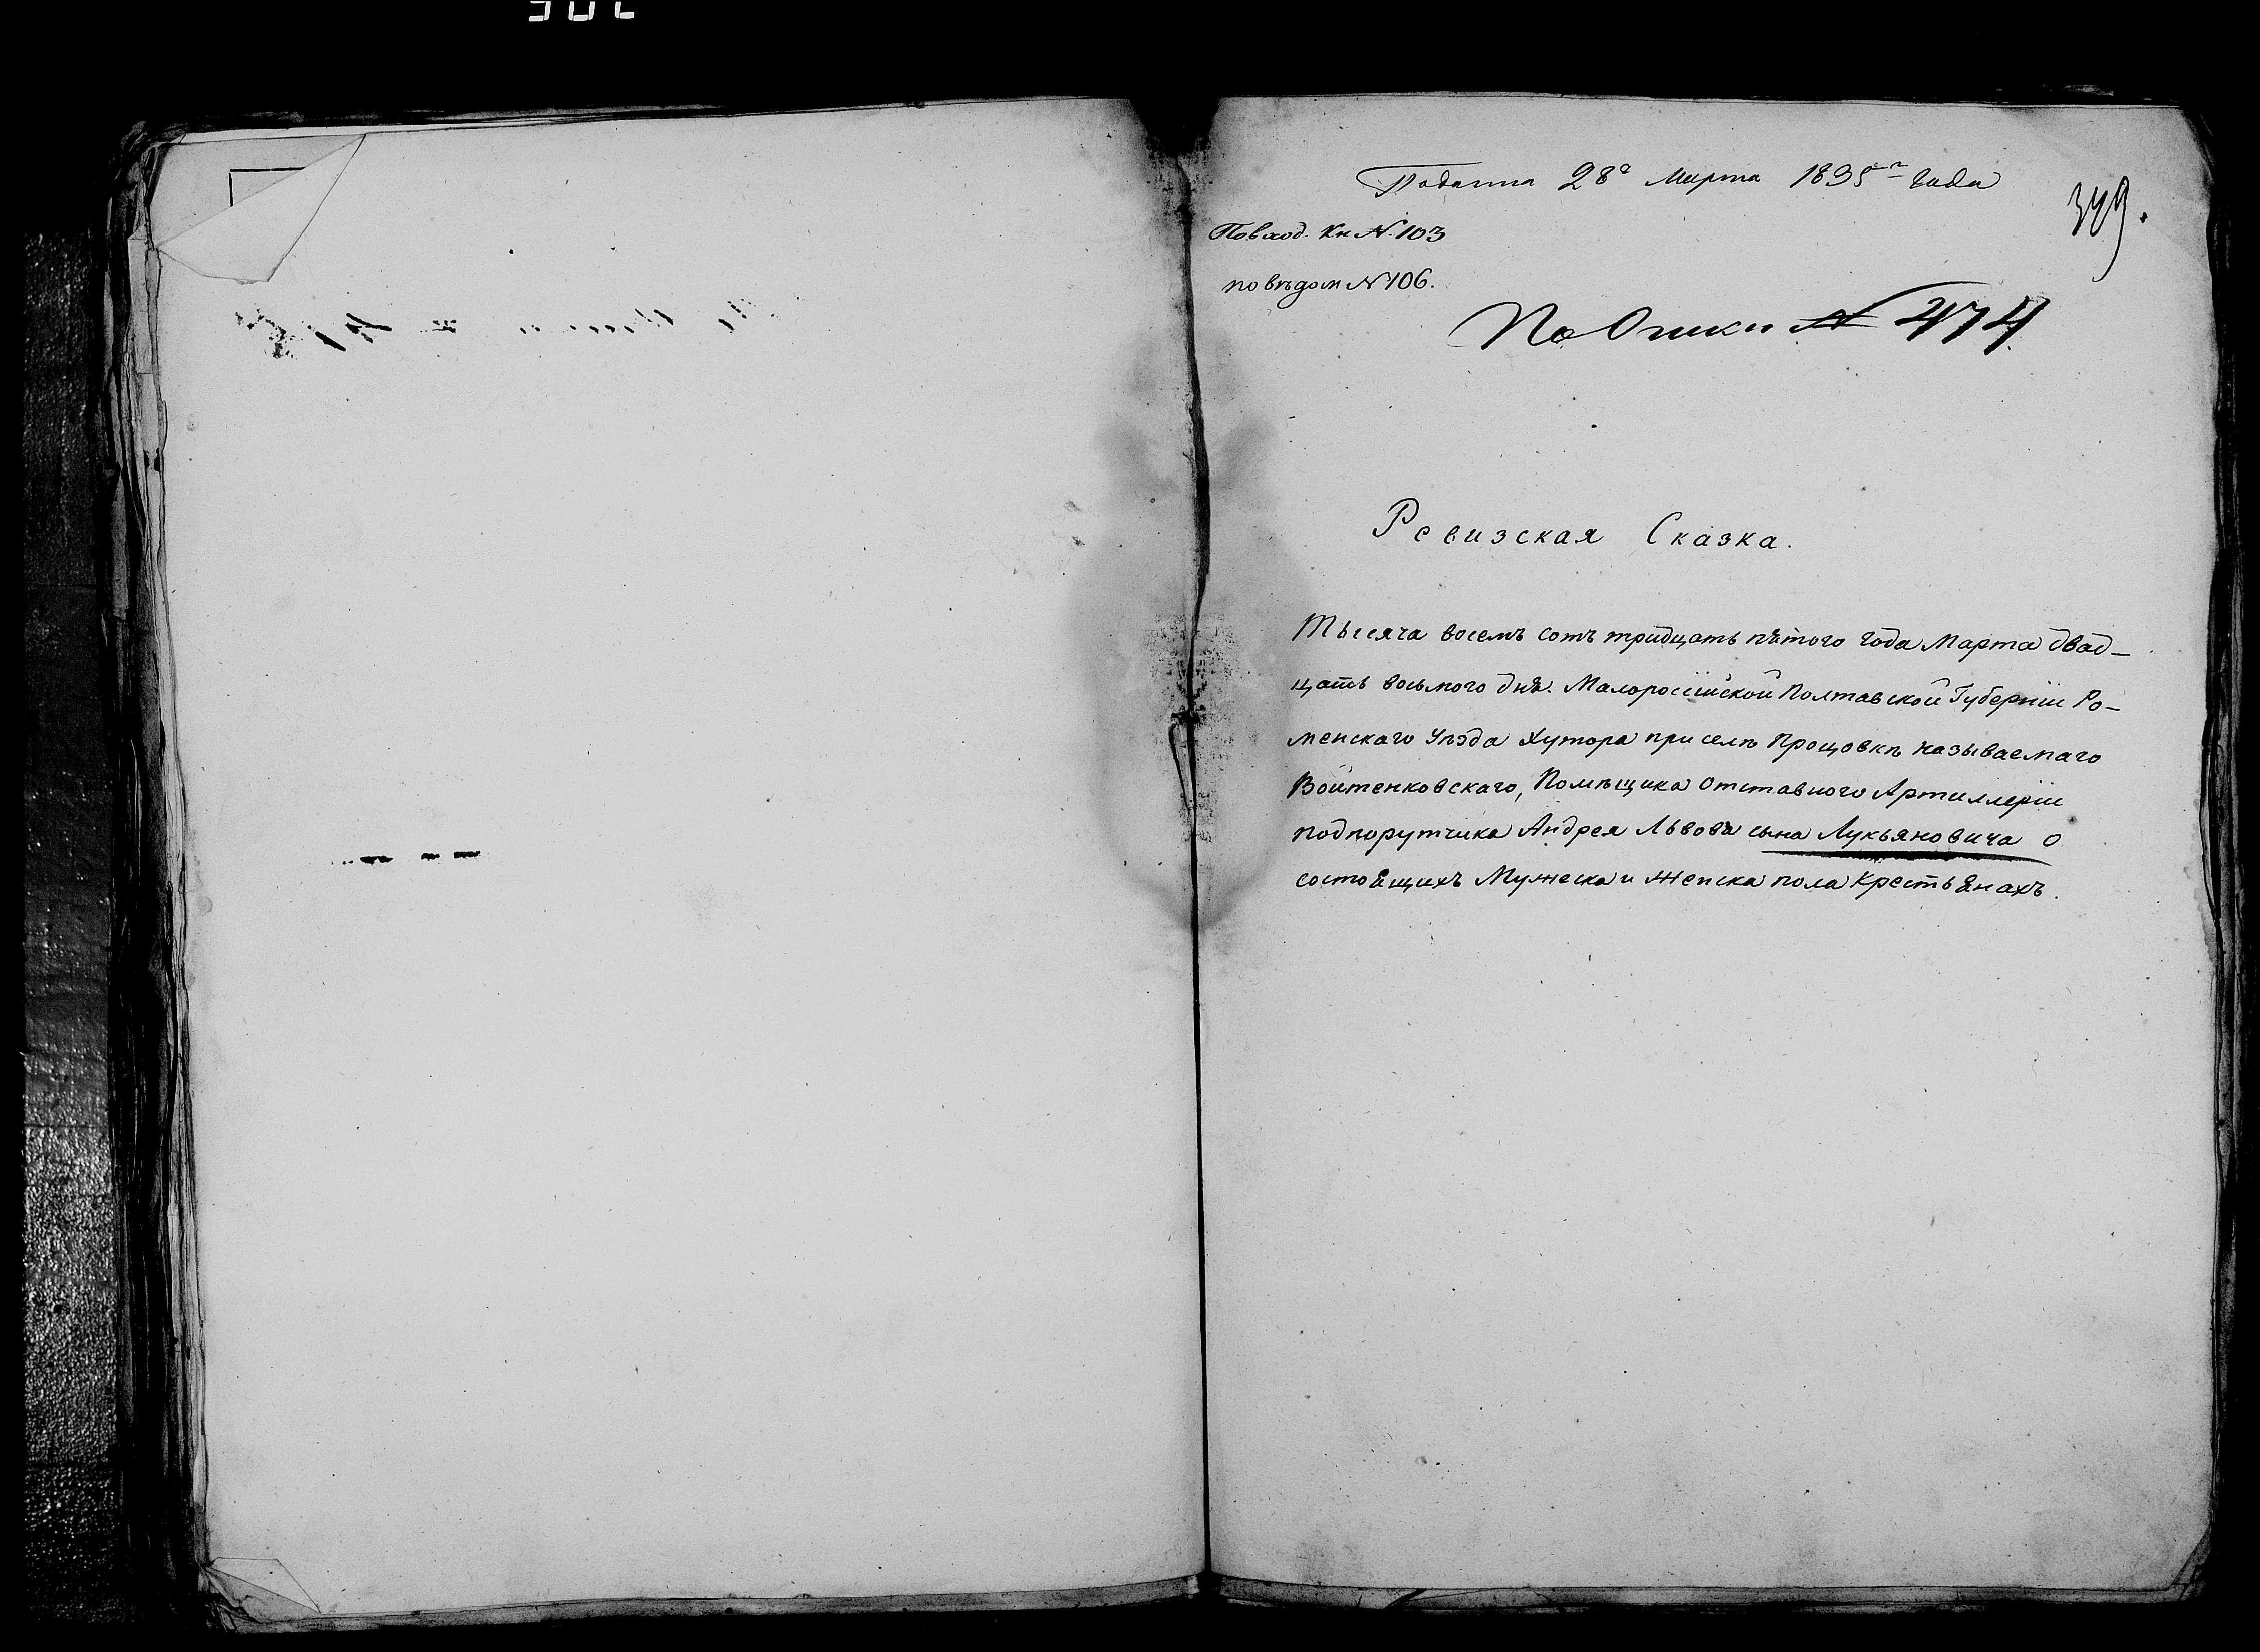 Подана 28го Марта 1835го года
349.
По вход. Кн №. 103
по вѣдом № 106.
По Описи № 474
Ревизская Сказка.
Тысяча восемъ сотъ тридцать пятого года Марта двад-
цать восьмого дня. Малороссійской Полтавской Губерніи Ро-
менскаго Уѣзда Хутора при селѣ Процовкѣ называемаго
Войтенковскаго, Помѣщика Отставного Артиллеріи
подпорутчика Андрея Львова сына Лукьяновича о
состоящихъ Мужеска и Женска пола Крестьянахъ.